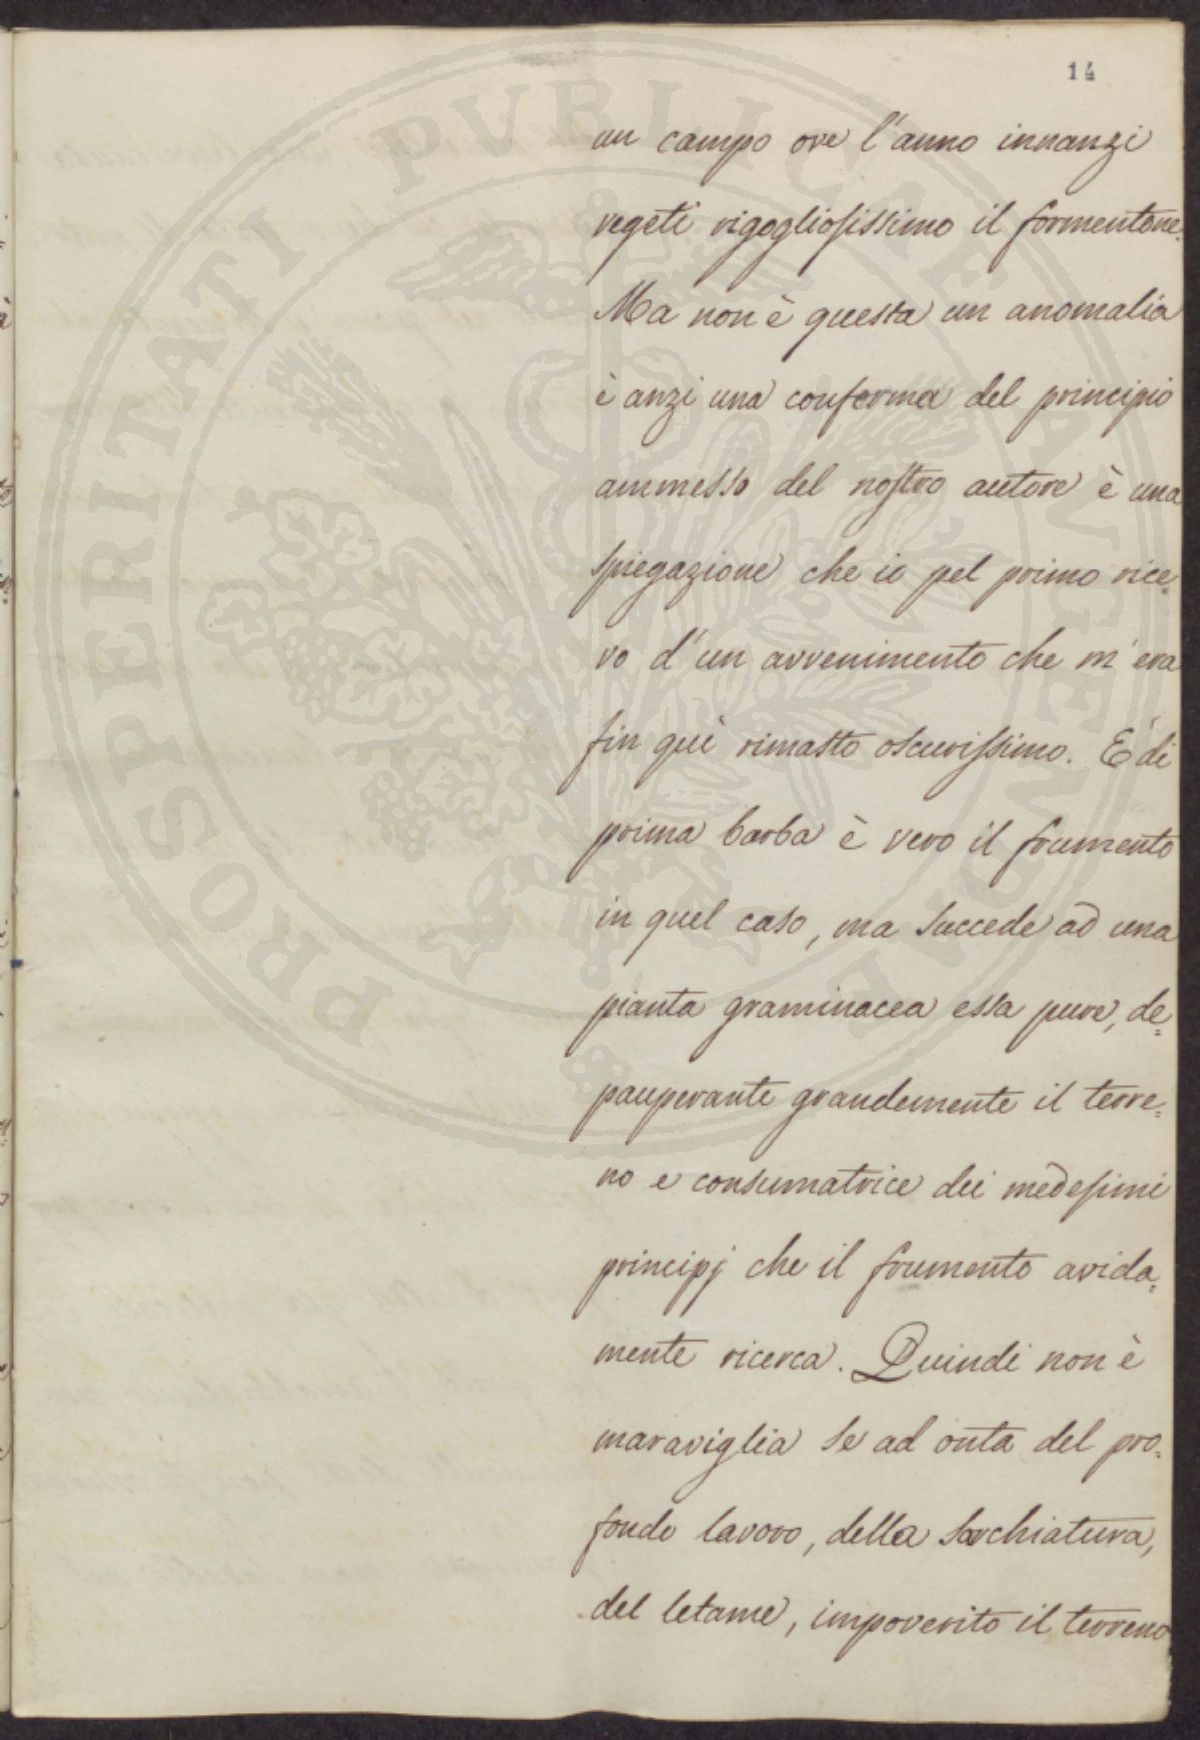 14
un campo ove l'anno innanzi
vegeti rigogliosissimo il formentone.
Ma non è questa un anomalia
è anzi una conferma del principio
ammesso del nostro autore è una
spiegazione che io pel primo rice=
vo d'un avvenimento che m'era
fin quì rimasto oscurissimo. E' di
prima barba è vero il frumento
in quel caso, ma succede ad una
pianta graminacea essa pure, de=
pauperante grandemente il terre=
no e consumatrice dei medesimi
principj che il frumento avida=
mente ricerca. Quindi non è
maraviglia se ad onta del pro=
fondo lavoro, della sarchiatura,
del letame, impoverito il terreno
PROSPERITATI PVBLICAE AVGENDAE